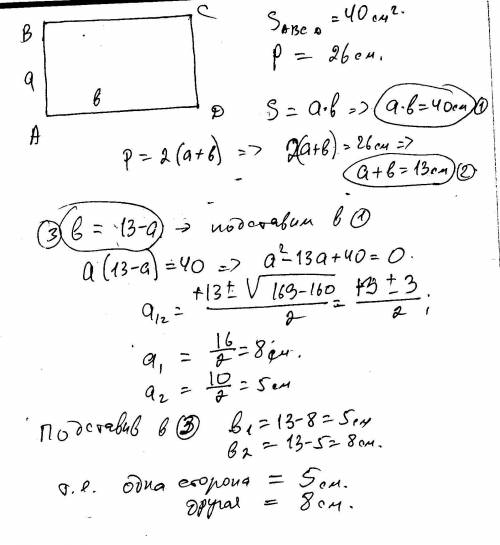 B C
a
в
A D
S ABCD = 40 см².
P = 26 см.
S = a·в => a·в = 40см ①
P = 2(a+в) => 2(a+в) = 26см =>
a+в = 13см ②
③ в = 13-a → подставим в ①
a(13-a) = 40 => a²-13a+40 = 0.
a₁₂ = +13 ± √169-160 / 2 = +13 ± 3 / 2 ;
a₁ = 16/2 = 8см.
a₂ = 10/2 = 5см
Подставив в ③ в₁ = 13-8 = 5см
в₂ = 13-5 = 8см.
т.е. одна сторона = 5см.
другая = 8см.